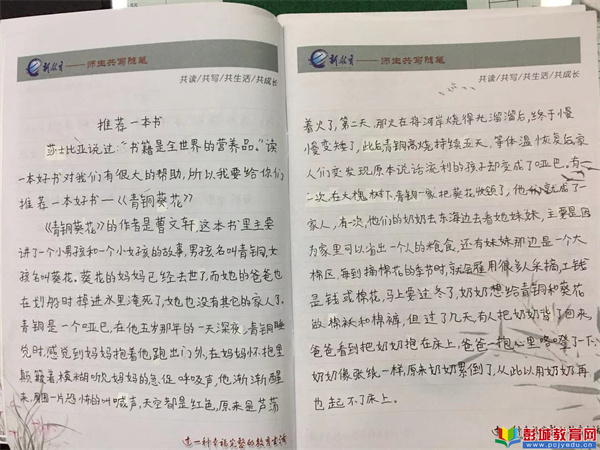 新教育——师生共写随笔
共读/共写/共生活/共成长
推荐一本书
莎士比亚说过:“书籍是全世界的营养品。”读
一本好书对我们有很大的帮助,所以我要给你们
推荐一本好书——《青铜葵花》
《青铜葵花》的作者是曹文轩,这本书里主要
讲了一个小男孩和一个小女孩的故事,男孩名叫青铜,女
孩名叫葵花。葵花的妈妈已经去世了,而她的爸爸也
在划船时掉进水里淹死了,她也没有其它的家人了。
青铜是一个哑巴,在他五岁那年的一天深夜,青铜睡
觉时,感觉到妈妈抱着他,跑出门外,在妈妈怀抱里
颠簸着,模糊听见妈妈的急促呼吸声,他渐渐醒
来,周围一片恐怖的叫喊声,天空都是红色,原来是芦荡
过一种幸福完整的教育生活
新教育——师生共写随笔
共读/共写/共生活/共成长
着火了,第二天,那火在将河岸烧得光溜溜后,终于慢
慢变矮了,此后青铜高烧持续五天,等体温恢复后家
人们变发现原本说话流利的孩子却变成了哑巴。有
一次,在大槐树下,青铜一家把葵花收领了,他们就成了一
家人,有一次,他们的奶奶去东海边去看她妹妹,主要是因
为家里可以省出一个人的粮食,还有妹妹那边是一个大
棉区,每到摘棉花的季节时,就会雇用很多人手摘,工钱
是钱或棉花,马上要过冬了,奶奶想给青铜和葵花
做棉袄和棉裤,但过了几天,有人把奶奶背了回来,
爸爸看到把奶奶抱在床上,爸爸一抱心里咯噔了一下,
奶奶像张纸一样,原来奶奶累倒了,从此以用奶奶再
也起不了床上。
彭城教育网
www.pcjyedu.cn